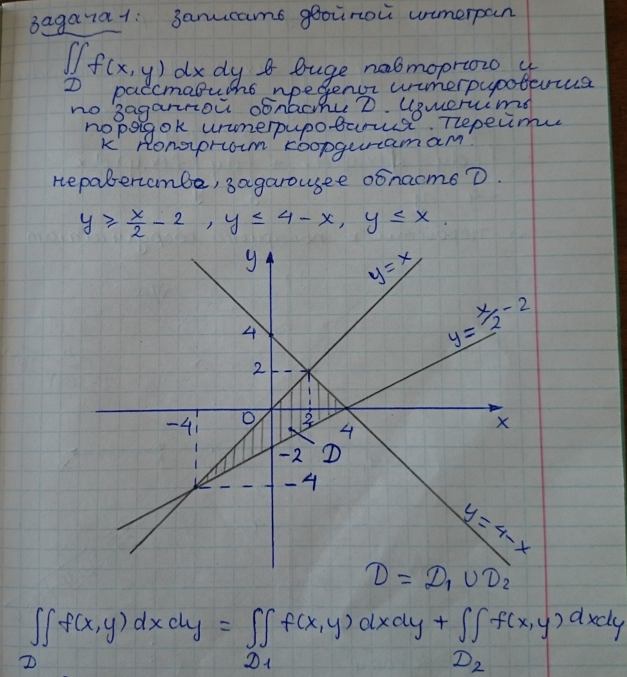 задача 1: записать двойной интеграл
∬ f(x,y) dx dy в виде павторного и
D расставить пределы интегрирования
по заданной области D. Изменить
порядок интегрирования. Перейти
к полярным координатам.
неравенства, задающее область D.
y ≥ x/2 − 2 , y ≤ 4 − x, y ≤ x .
y
y = x
y = x/2 − 2
4
2
−4
0
2
4
x
−2
D
−4
y = 4 − x
D = D₁ ∪ D₂
∬ f(x,y) dx dy = ∬ f(x,y) dx dy + ∬ f(x,y) dx dy
D D1 D₂